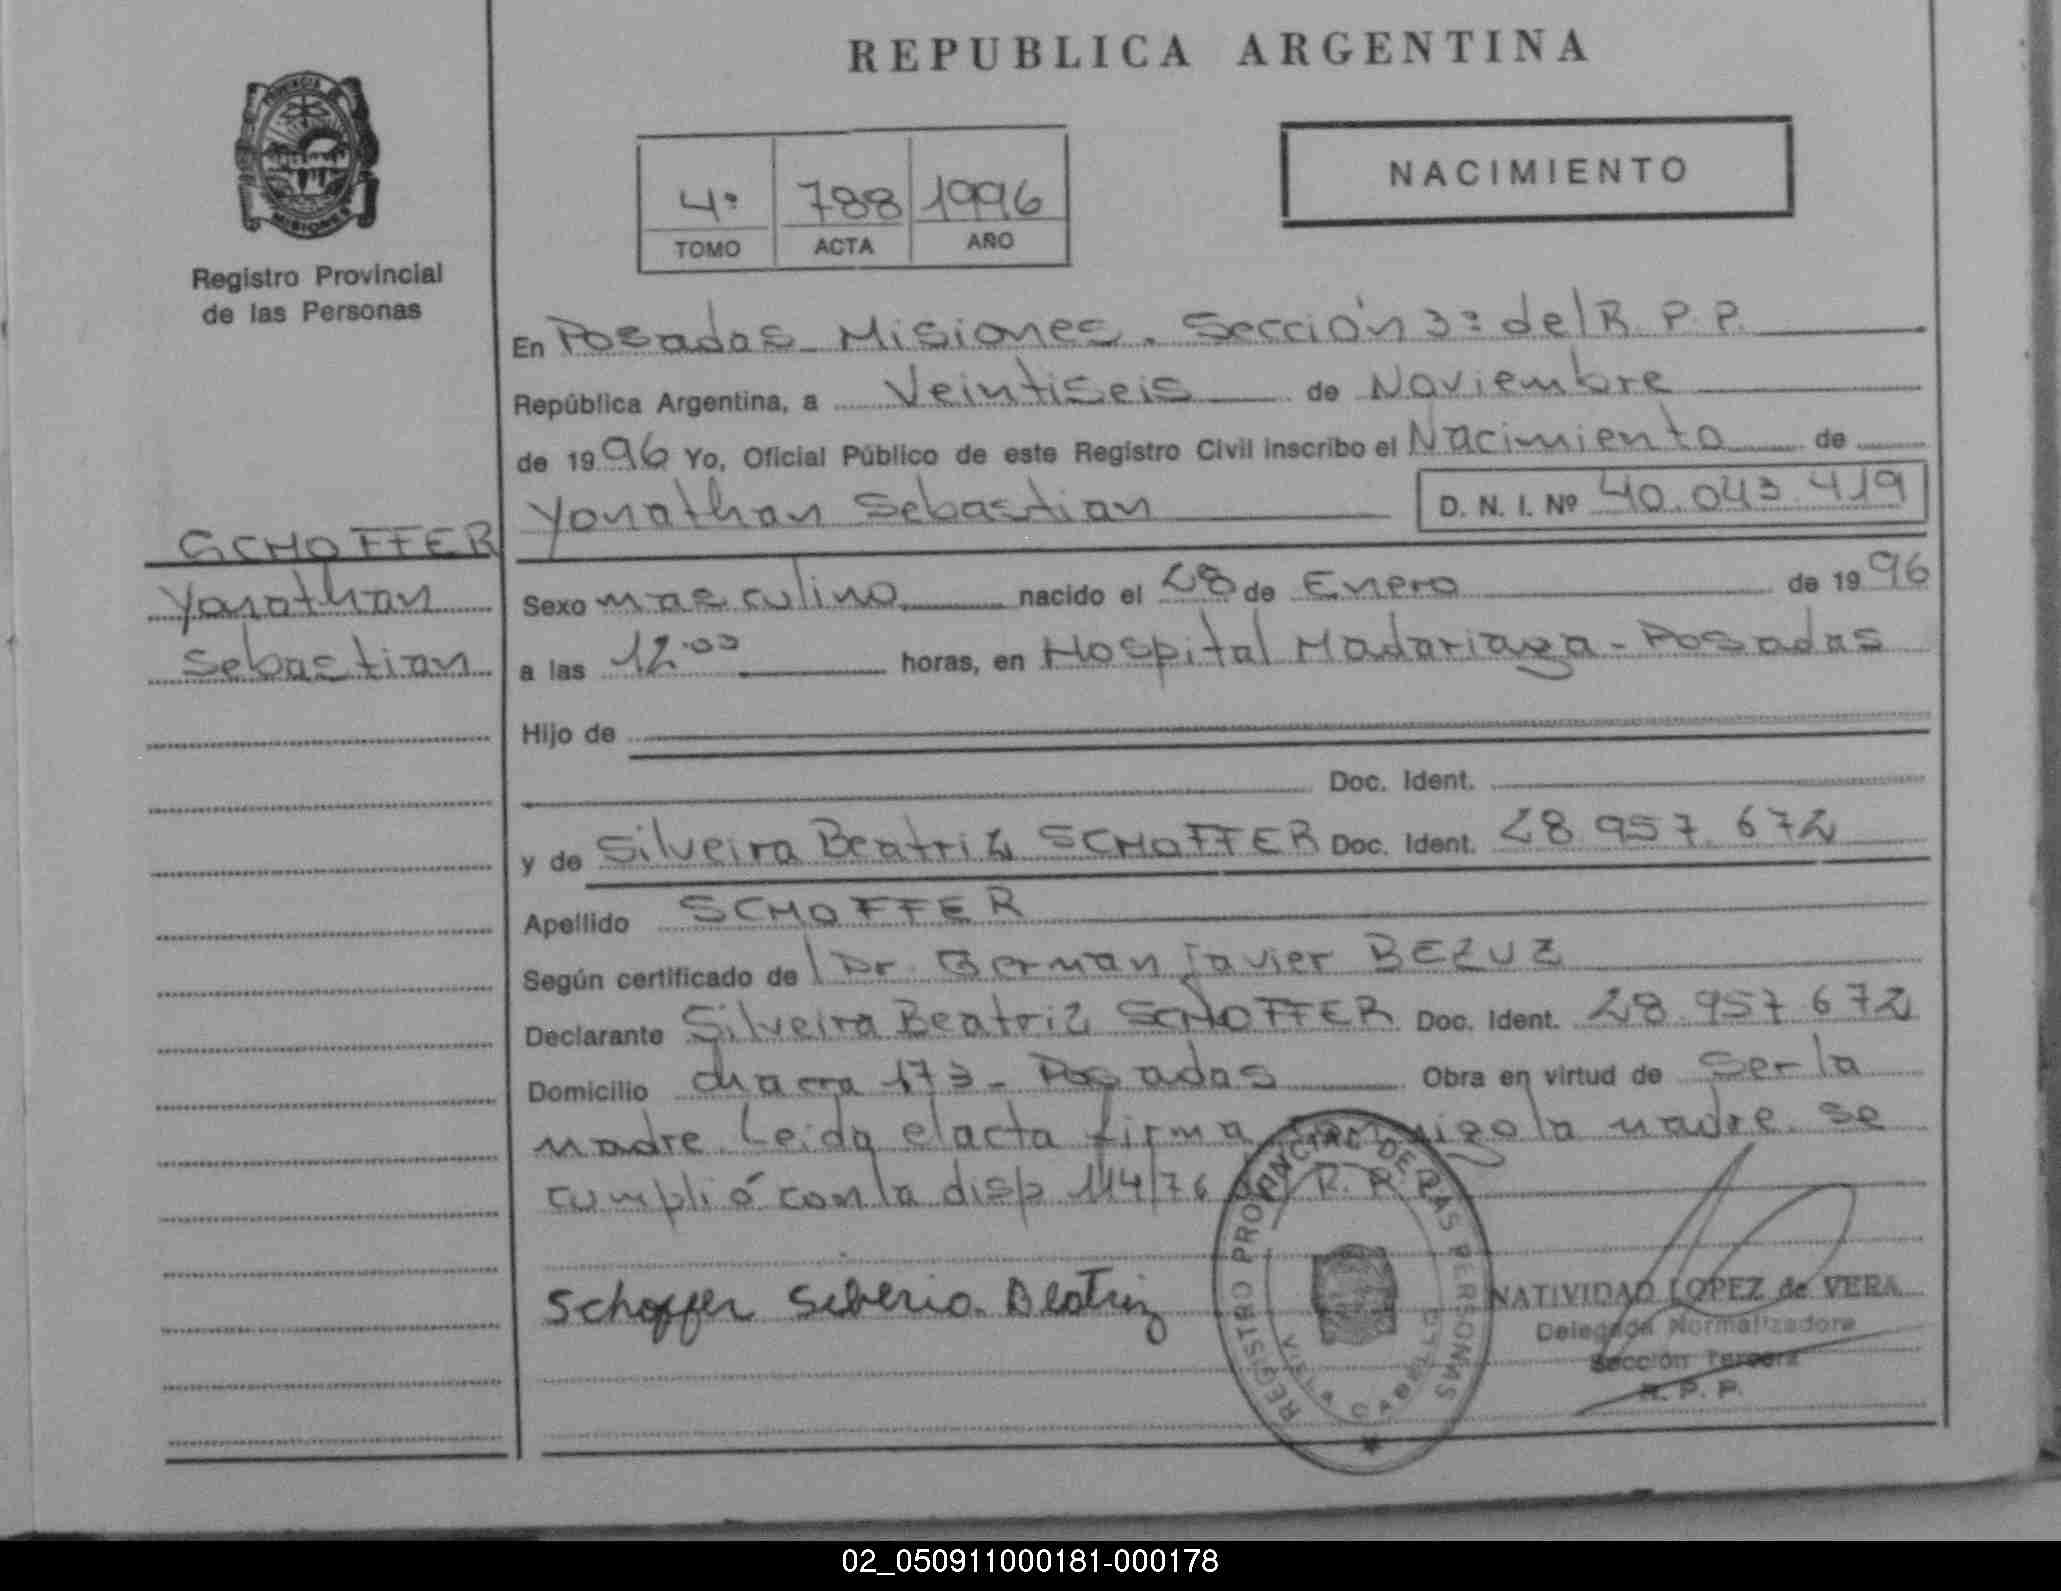 REPUBLICA ARGENTINA
PROVINCIA
MISIONES
Registro Provincial
de las Personas
NACIMIENTO
4º 788 1996
TOMO ACTA AÑO
En Posadas Misiones. Sección 3º del R. P. P.
República Argentina, a Veintiseis de Noviembre
de 1996 Yo, Oficial Público de este Registro Civil inscribo el Nacimiento de
Yonathan Sebastian D. N. I. Nº 40.043.419
SCHOFFER
Yonathan
Sebastian
Sexo masculino nacido el 28 de Enero de 1996
a las 12.00 horas, en Hospital Madariaga - Posadas
Hijo de
Doc. Ident.
y de Silveira Beatriz SCHOFFER Doc. Ident. 28 957. 672
Apellido SCHOFFER
Según certificado de l Dr. German Javier BEZUZ
Declarante Silveira Beatriz SCHOFFER Doc. Ident. 28.957 672
Domicilio chacra 173 - Posadas Obra en virtud de Ser la
madre. Leida el acta firma conmigo la madre. se
cumplió con la disp 114/76 R. P. P.
Schoffer Silveria. Beatriz
REGISTRO PROVINCIAL DE LAS PERSONAS
VILLA CABELLO
NATIVIDAD LOPEZ de VERA
Delegada Normalizadora
Sección Tercera
R. P. P.
02_050911000181-000178